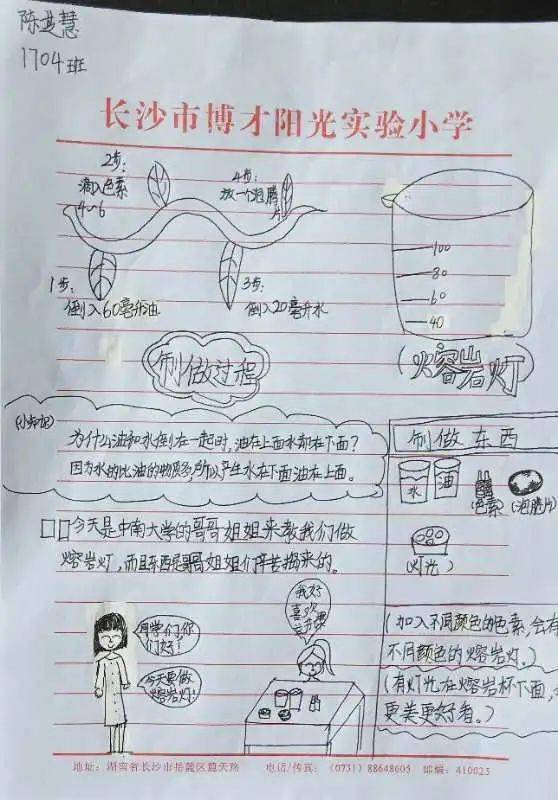 陈 慧
1704班
长沙市博才阳光实验小学
2步:
滴入色素
4~6
4步:
放一个泡腾
片
1步:
倒入60毫升油
3步:
倒入20毫升水
100
80
60
40
制做过程
(火容岩灯)
(小知识)
为什么油和水倒在一起时,油在上面水却在下面?
因为水的比油的物质多,所以产生水在下面油在上面。
制做东西
水
油
(色素)
(泡腾片)
(灯光)
今天是中南大学的哥哥姐姐来教我们做
熔岩灯,而且东西是哥哥姐姐们辛苦搬来的。
同学们,你
们好!
今天要做
熔岩灯!
我好
喜欢
(加入不同颜色的色素,会有
不同颜色的熔岩灯。)
(有灯光在熔岩杯下面,
更美更好看。)
地址:湖南省长沙市岳麓区麓天路 电话/传真:(0731)88648605 邮编:410023